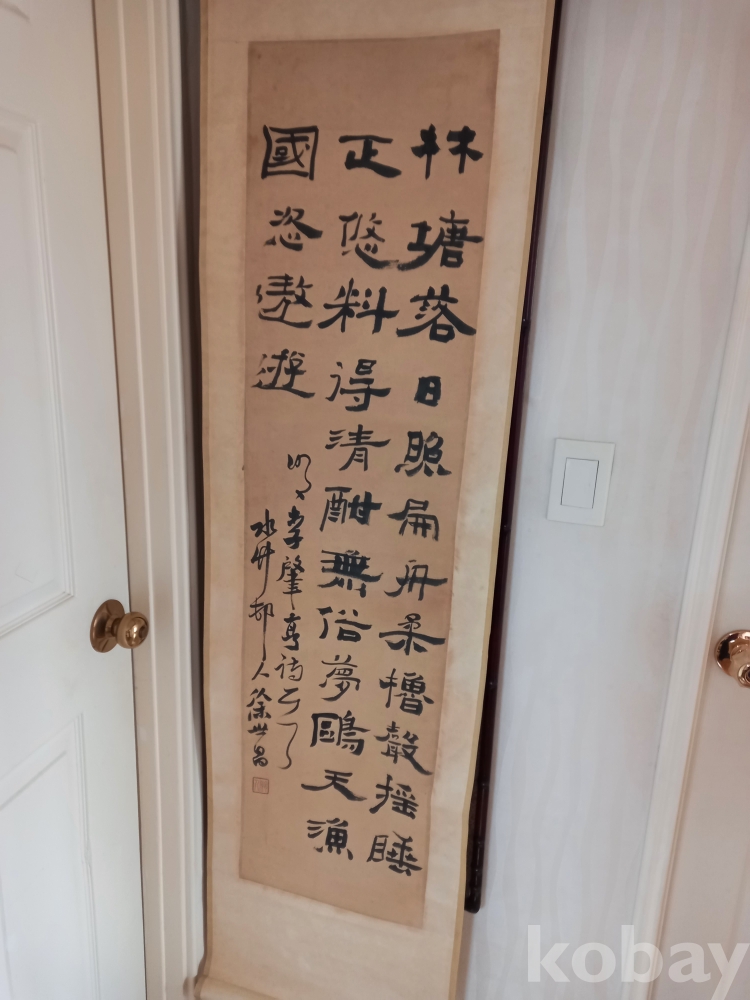 林塘落日照扁舟柔櫓聲搖睡
正悠料得清酣無俗夢鷗天漁
國恣遨遊
李肇亨詩
水竹邨人徐世昌
kobay